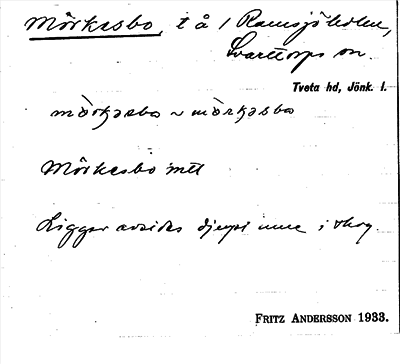 Mörkasbo, t å 1 Ramsjöholm,
Svarttorps sn.
Tveta hd, Jönk. l.
mörkasbo ~ mörkasbo
Mörkasbo
Ligger avsides djupt inne i skog.
FRITZ ANDERSSON 1933.